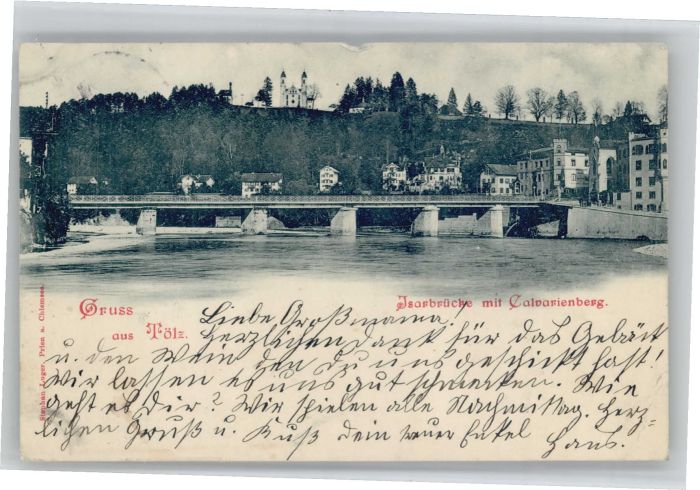 Gruss aus Tölz.
Isarbrücke mit Calvarienberg.
Stephan Luger, Prien a. Chiemsee.
Liebe Großmama!
Herzlichen Dank für das Gebäck
u. den Wein den Du uns geschickt hast!
Wir lassen es uns gut schmecken. Wie
geht es Dir? Wir spielen alle Nachmittag. Herz=
lichen Gruß u. Kuß dein treuer Enkel
Hans.